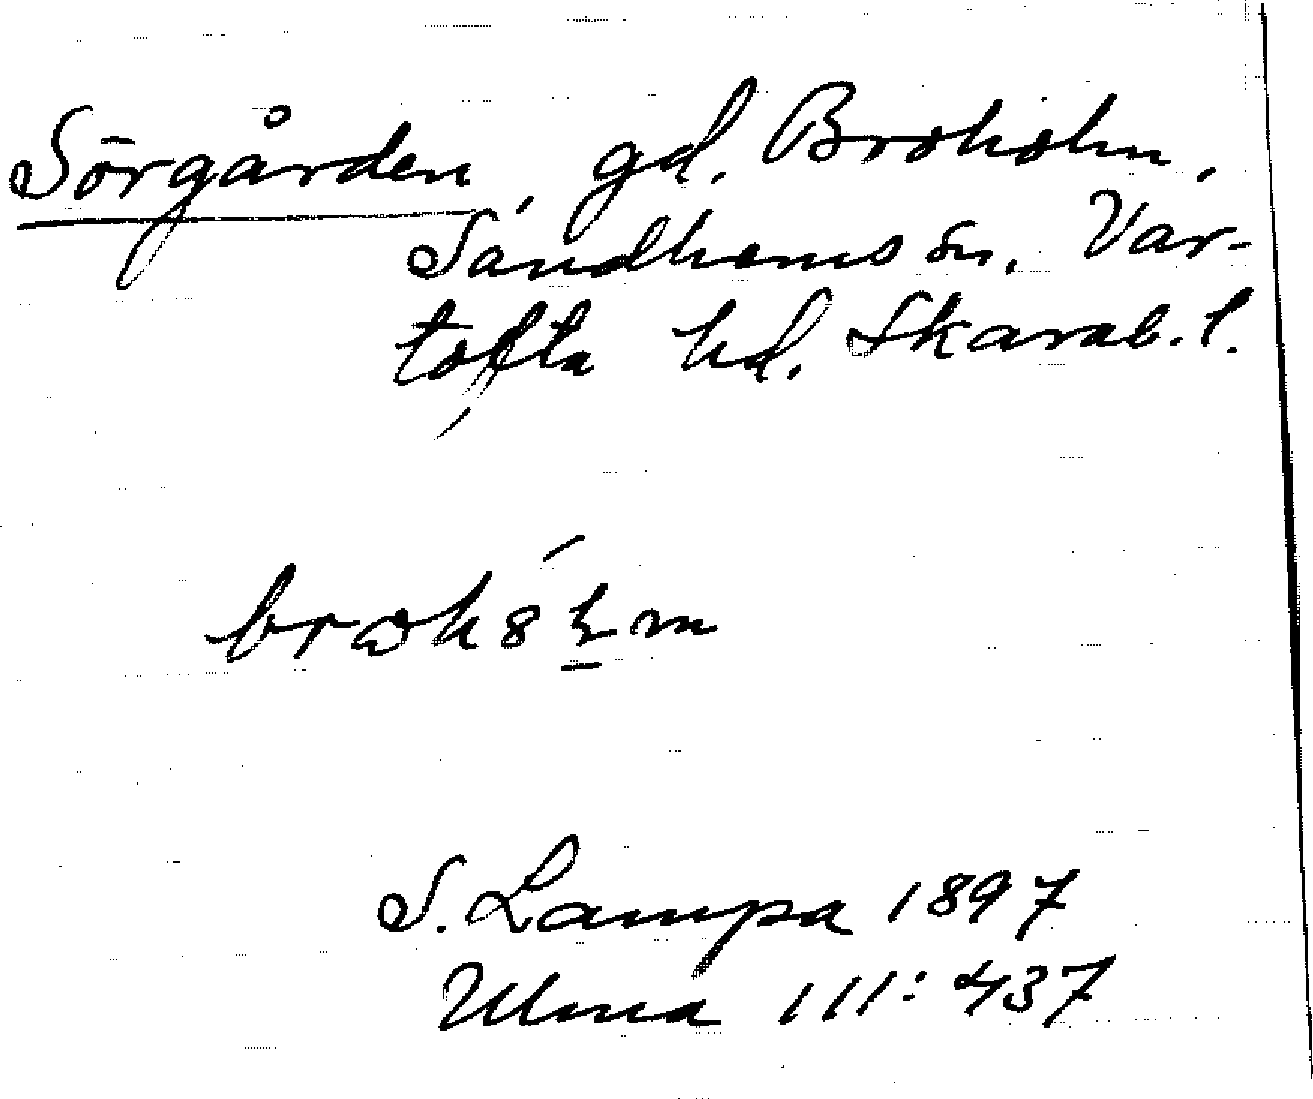 Sörgården, gd. Broholm,
Sandhems sn. Var-
tofta hd. Skarab. l.
S. Lampa 1897
Ulma 111:437